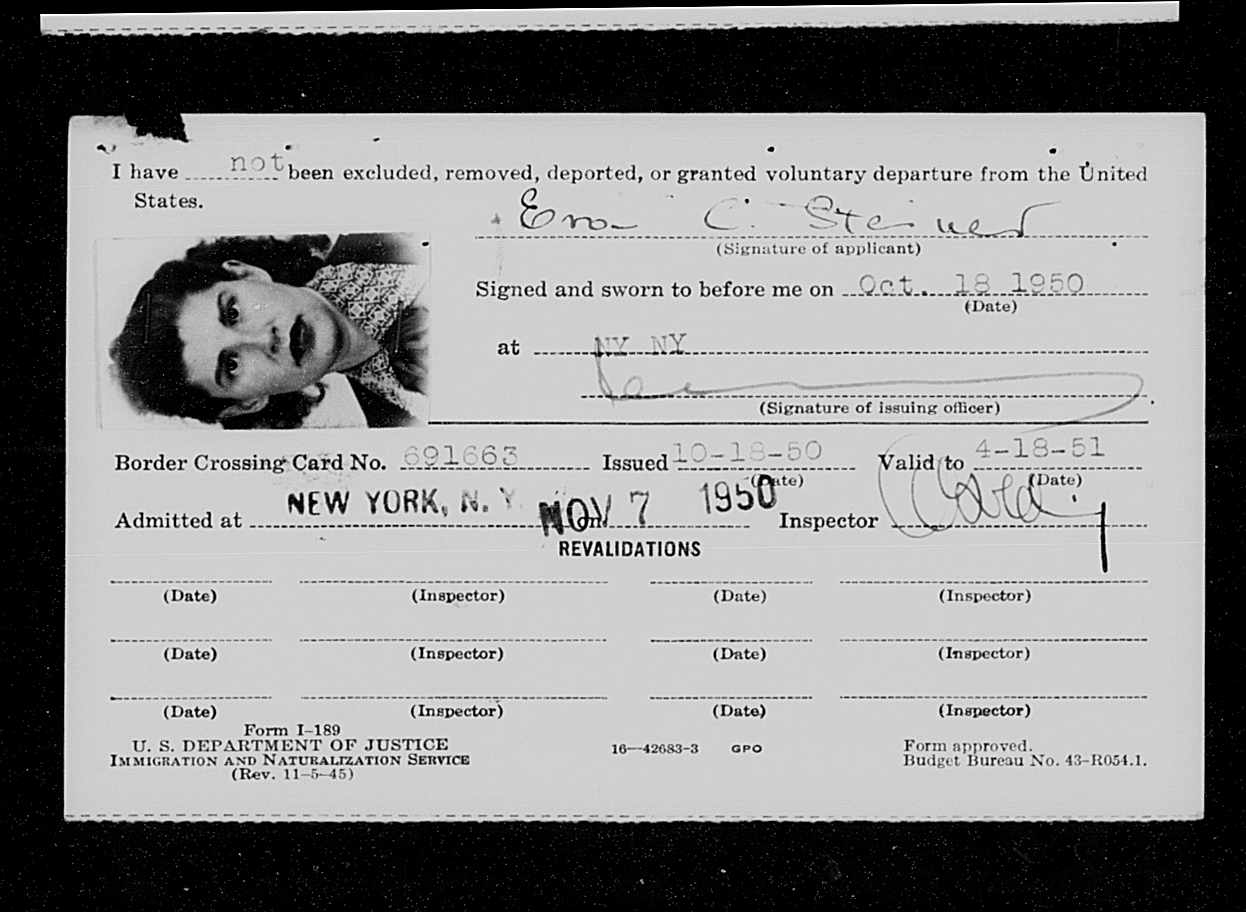 I have not been excluded, removed, deported, or granted voluntary departure from the United
States.
Eva C. Steiner
(Signature of applicant)
Signed and sworn to before me on Oct. 18 1950
(Date)
at NY NY
(Signature of issuing officer)
Border Crossing Card No. 691663 Issued 10-18-50 Valid to 4-18-51
(Date) (Date)
Admitted at NEW YORK, N. Y. NOV 7 1950 Inspector
REVALIDATIONS
(Date) (Inspector) (Date) (Inspector)
(Date) (Inspector) (Date) (Inspector)
(Date) (Inspector) (Date) (Inspector)
Form I-189
U. S. DEPARTMENT OF JUSTICE 16—42683-3 GPO Form approved.
IMMIGRATION AND NATURALIZATION SERVICE Budget Bureau No. 43-R054.1.
(Rev. 11-5-45)